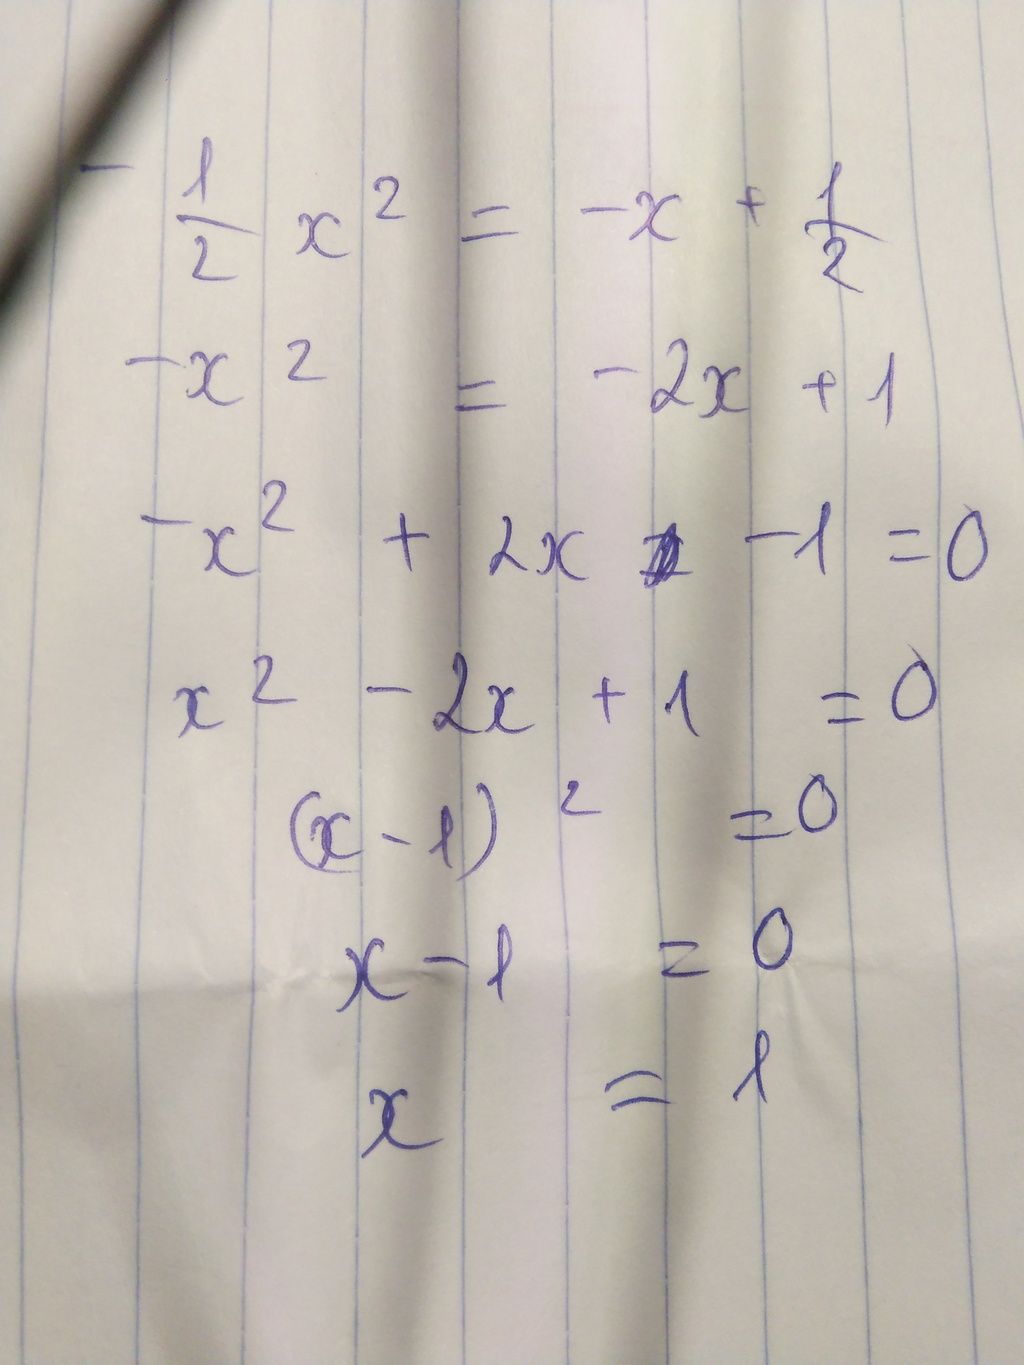 - 1/2 x² = -x + 1/2
-x² = -2x + 1
-x² + 2x -1 = 0
x² - 2x + 1 = 0
(x - 1)² = 0
x - 1 = 0
x = 1